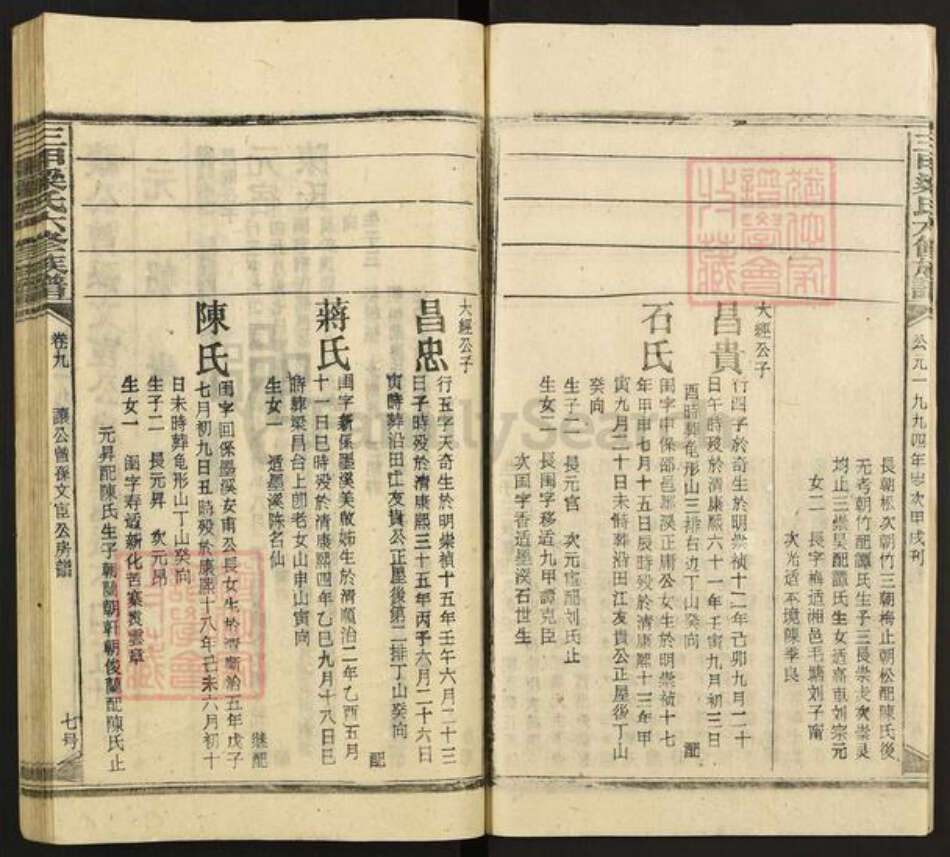 三甲梁氏六修族譜
公元一九九四年歲次甲戌刊
長朝松次朝竹三朝梅止朝松配陳氏後
元考朝竹配譚氏生子三長崇戈次崇灵
均止三崇昊配譚氏生女適高車刘宗元
女二 長字梅适湘邑毛塘刘子甯
次光适不境陳季良
大經公子
昌貴
行四字于於奇生於明崇禎十二年己卯九月二十
日午時殁於清康熙六十一年壬寅九月初三日
酉時葬龟形山三排右边丁山癸向
配
石氏
閨字中保邵邑那溪正庸公女生於明崇禎十七
年甲申七月十五日辰時殁於清康熙十三年甲
寅九月二十日未時葬沿田江友貴公正屋後丁山
癸向
生子二 長元官 次元宦配刘氏止
生女二 長閨字移适九甲譚克臣
次閨字香适墨溪石世生
大經公子
昌忠
行五字天奇生於明崇禎十五年壬午六月二十三
日子時殁於清康熙三十五年丙子六月二十六日
寅時葬沿田江友貴公正屋後第二排丁山癸向
配
蔣氏
閨字新保墨溪美敬姊生於清順治二年乙酉五月
十一日巳時殁於清康熙四年乙巳九月十八日巳
時葬梁昌台上卽老女山申山寅向
生女一 适墨溪陈名仙
继配
陳氏
閨字回保墨溪安甫公長女生於清順治五年戊子
七月初九日丑時殁於康熙十八年己未六月初十
日未時葬龟形山丁山癸向
生子二 長元昇 次元昂
生女一 閨字寿适新化苦寨袁雲章
元昇配陳氏生子朝蘭朝軒朝俊蘭配陳氏止
三甲梁氏六修族譜
卷九
讓公曾孫文宦公房譜
七号
FamilySearch